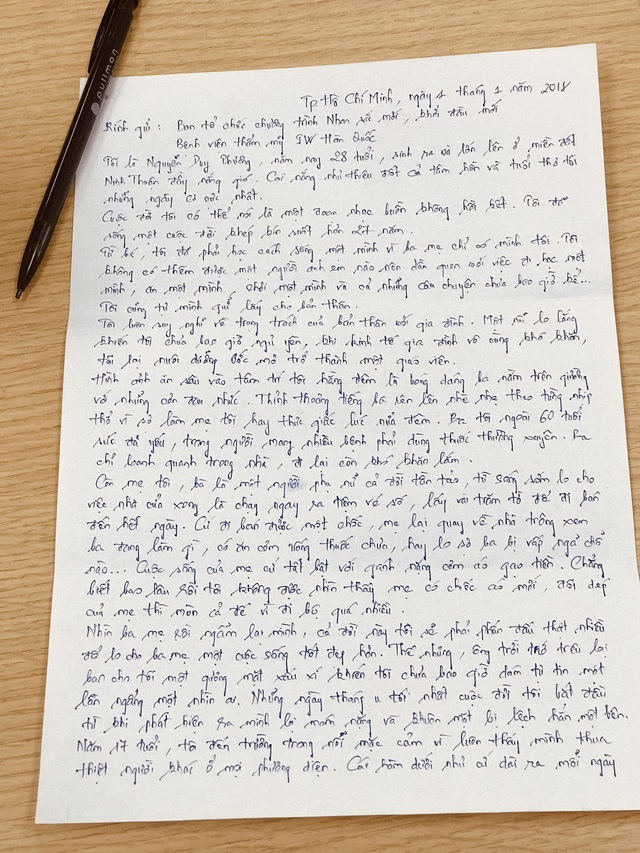 pullman
Tp. Hồ Chí Minh, ngày 4 tháng 1 năm 2018
Kính gửi : Ban tổ chức chương trình Nhan sắc mới, khởi đầu mới
Bệnh viện thẩm mỹ JW Hàn Quốc
Tôi là Nguyễn Duy Phương, năm nay 28 tuổi, sinh ra và lớn lên ở miền đất
Ninh Thuận đầy nắng gió. Cái nắng như thiêu đốt cả tâm hồn và tuổi thơ tôi
những ngày cơ cực nhất.
Cuộc đời tôi có thể nói là một đoạn nhạc buồn không hồi kết. Tôi đã
sống một cuộc đời khép kín suốt hơn 27 năm.
Từ bé, tôi đã phải học cách sống một mình vì ba mẹ chỉ có mình tôi. Tôi
không có thêm được một người anh em nào nên dần quen với việc đi học một
mình, ăn một mình, chơi một mình và cả những câu chuyện chưa bao giờ kể...
Tôi cũng tự mình giữ lấy cho bản thân.
Tôi luôn suy nghĩ về trọng trách của bản thân với gia đình. Một nỗi lo lắng
khiến tôi chưa bao giờ ngủ yên, khi kinh tế gia đình vô cùng khó khăn,
tôi lại nuôi dưỡng ước mơ trở thành một giáo viên.
Hình ảnh ăn sâu vào tâm trí tôi hằng đêm là bóng dáng ba nằm trên giường
với những cơn đau nhức. Thỉnh thoảng tiếng ba rên lên nhè nhẹ theo từng nhịp
thở vì sợ làm mẹ tôi hay thức giấc lúc nửa đêm. Ba tôi ngoài 60 tuổi
sức đã yếu, trong người mang nhiều bệnh phải dùng thuốc thường xuyên. Ba
chỉ loanh quanh trong nhà, đi lại còn khó khăn lắm.
Còn mẹ tôi, bà là một người phụ nữ cả đời tần tảo, từ sáng sớm lo cho
việc nhà cửa xong là chạy ngay ra tiệm vé số, lấy vài trăm tờ để đi bán
đến hết ngày. Cứ đi bán được một chốc, mẹ lại quay về nhà trông xem
ba đang làm gì, có ăn cơm uống thuốc chưa, hay lo sợ ba bị vấp ngã chỗ
nào... Cuộc sống của mẹ cứ tất bật với gánh nặng cơm áo gạo tiền. Chẳng
biết bao lâu rồi tôi không được nhìn thấy mẹ có chiếc áo mới, đôi dép
của mẹ thì mòn cả đế vì đi bộ quá nhiều.
Nhìn ba mẹ rồi ngẫm lại mình, cả đời này tôi sẽ phải phấn đấu thật nhiều
để lo cho ba mẹ một cuộc sống tốt đẹp hơn. Thế nhưng, ông trời trớ trêu lại
ban cho tôi một gương mặt xấu xí khiến tôi chưa bao giờ dám tự tin một
lần ngẩng mặt nhìn ai. Những ngày tháng u tối nhất cuộc đời tôi bắt đầu
từ khi phát hiện ra mình bị móm nặng và khuôn mặt bị lệch hẳn một bên.
Năm 17 tuổi, tôi đến trường trong nỗi mặc cảm vì luôn thấy mình thua
thiệt người khác ở mọi phương diện. Cái hàm dưới như cứ dài ra mỗi ngày